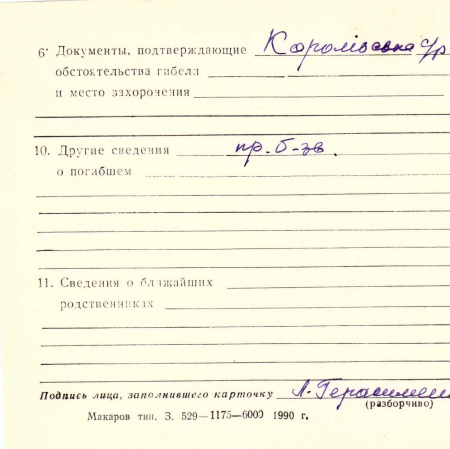 6· Документы, подтверждающие Королівська с/р
обстоятельства гибели
и место захоронения
10. Другие сведения пр. б-зв.
о погибшем
11. Сведения о ближайших
родственниках
Подпись лица, заполнившего карточку Л. Герасимен
(разборчиво)
Макаров тип. З. 529—1175—6000 1990 г.